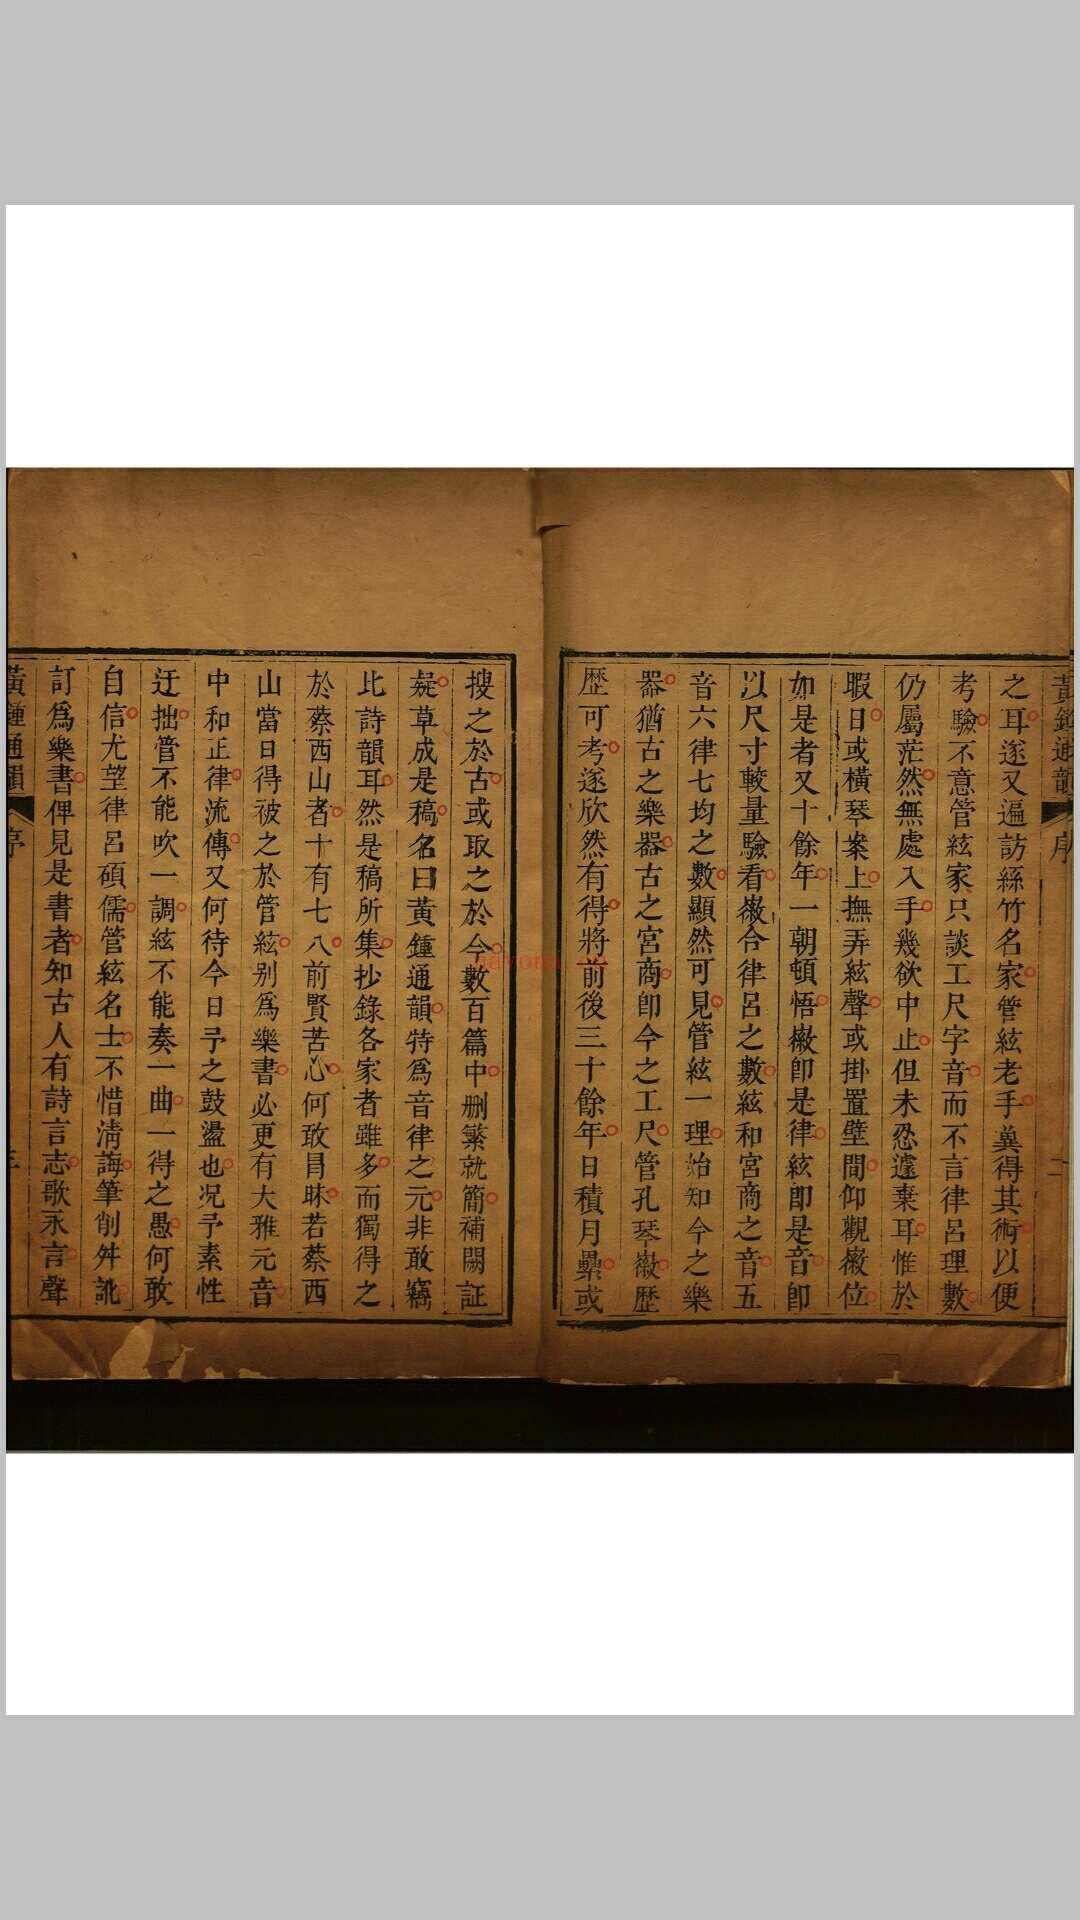 黃鐘通韻 序 二
之耳遂又遍訪絲竹名家管絃老手冀得其術以便
考驗不意管絃家只談工尺字音而不言律呂理數
仍屬茫然無處入手幾欲中止但未忍遽棄耳惟於
暇日或橫琴案上撫弄絃聲或掛置壁間仰觀徽位
如是者又十餘年一朝頓悟徽卽是律絃卽是音卽
以尺寸較量驗看徽合律呂之數絃和宮商之音五
音六律七均之數顯然可見管絃一理始知今之樂
器猶古之樂器古之宮商卽今之工尺管孔琴徽歷
歷可考遂欣然有得將前後三十餘年日積月纍或
搜之於古或取之於今數百篇中刪繁就簡補闕証
疑草成是稿名曰黃鍾通韻特爲音律之元非敢竊
比詩韻耳然是稿所集抄錄各家者雖多而獨得之
於蔡西山者十有七八前賢苦心何敢冒昧若蔡西
山當日得被之於管絃別爲樂書必更有大雅元音
中和正律流傳又何待今日予之鼓盪也况予素性
迂拙管不能吹一調絃不能奏一曲一得之愚何敢
自信尤望律呂碩儒管絃名士不惜淸誨筆削舛訛
訂爲樂書俾見是書者知古人有詩言志歌永言聲
黃鍾通韻 序 三
nayona.cn